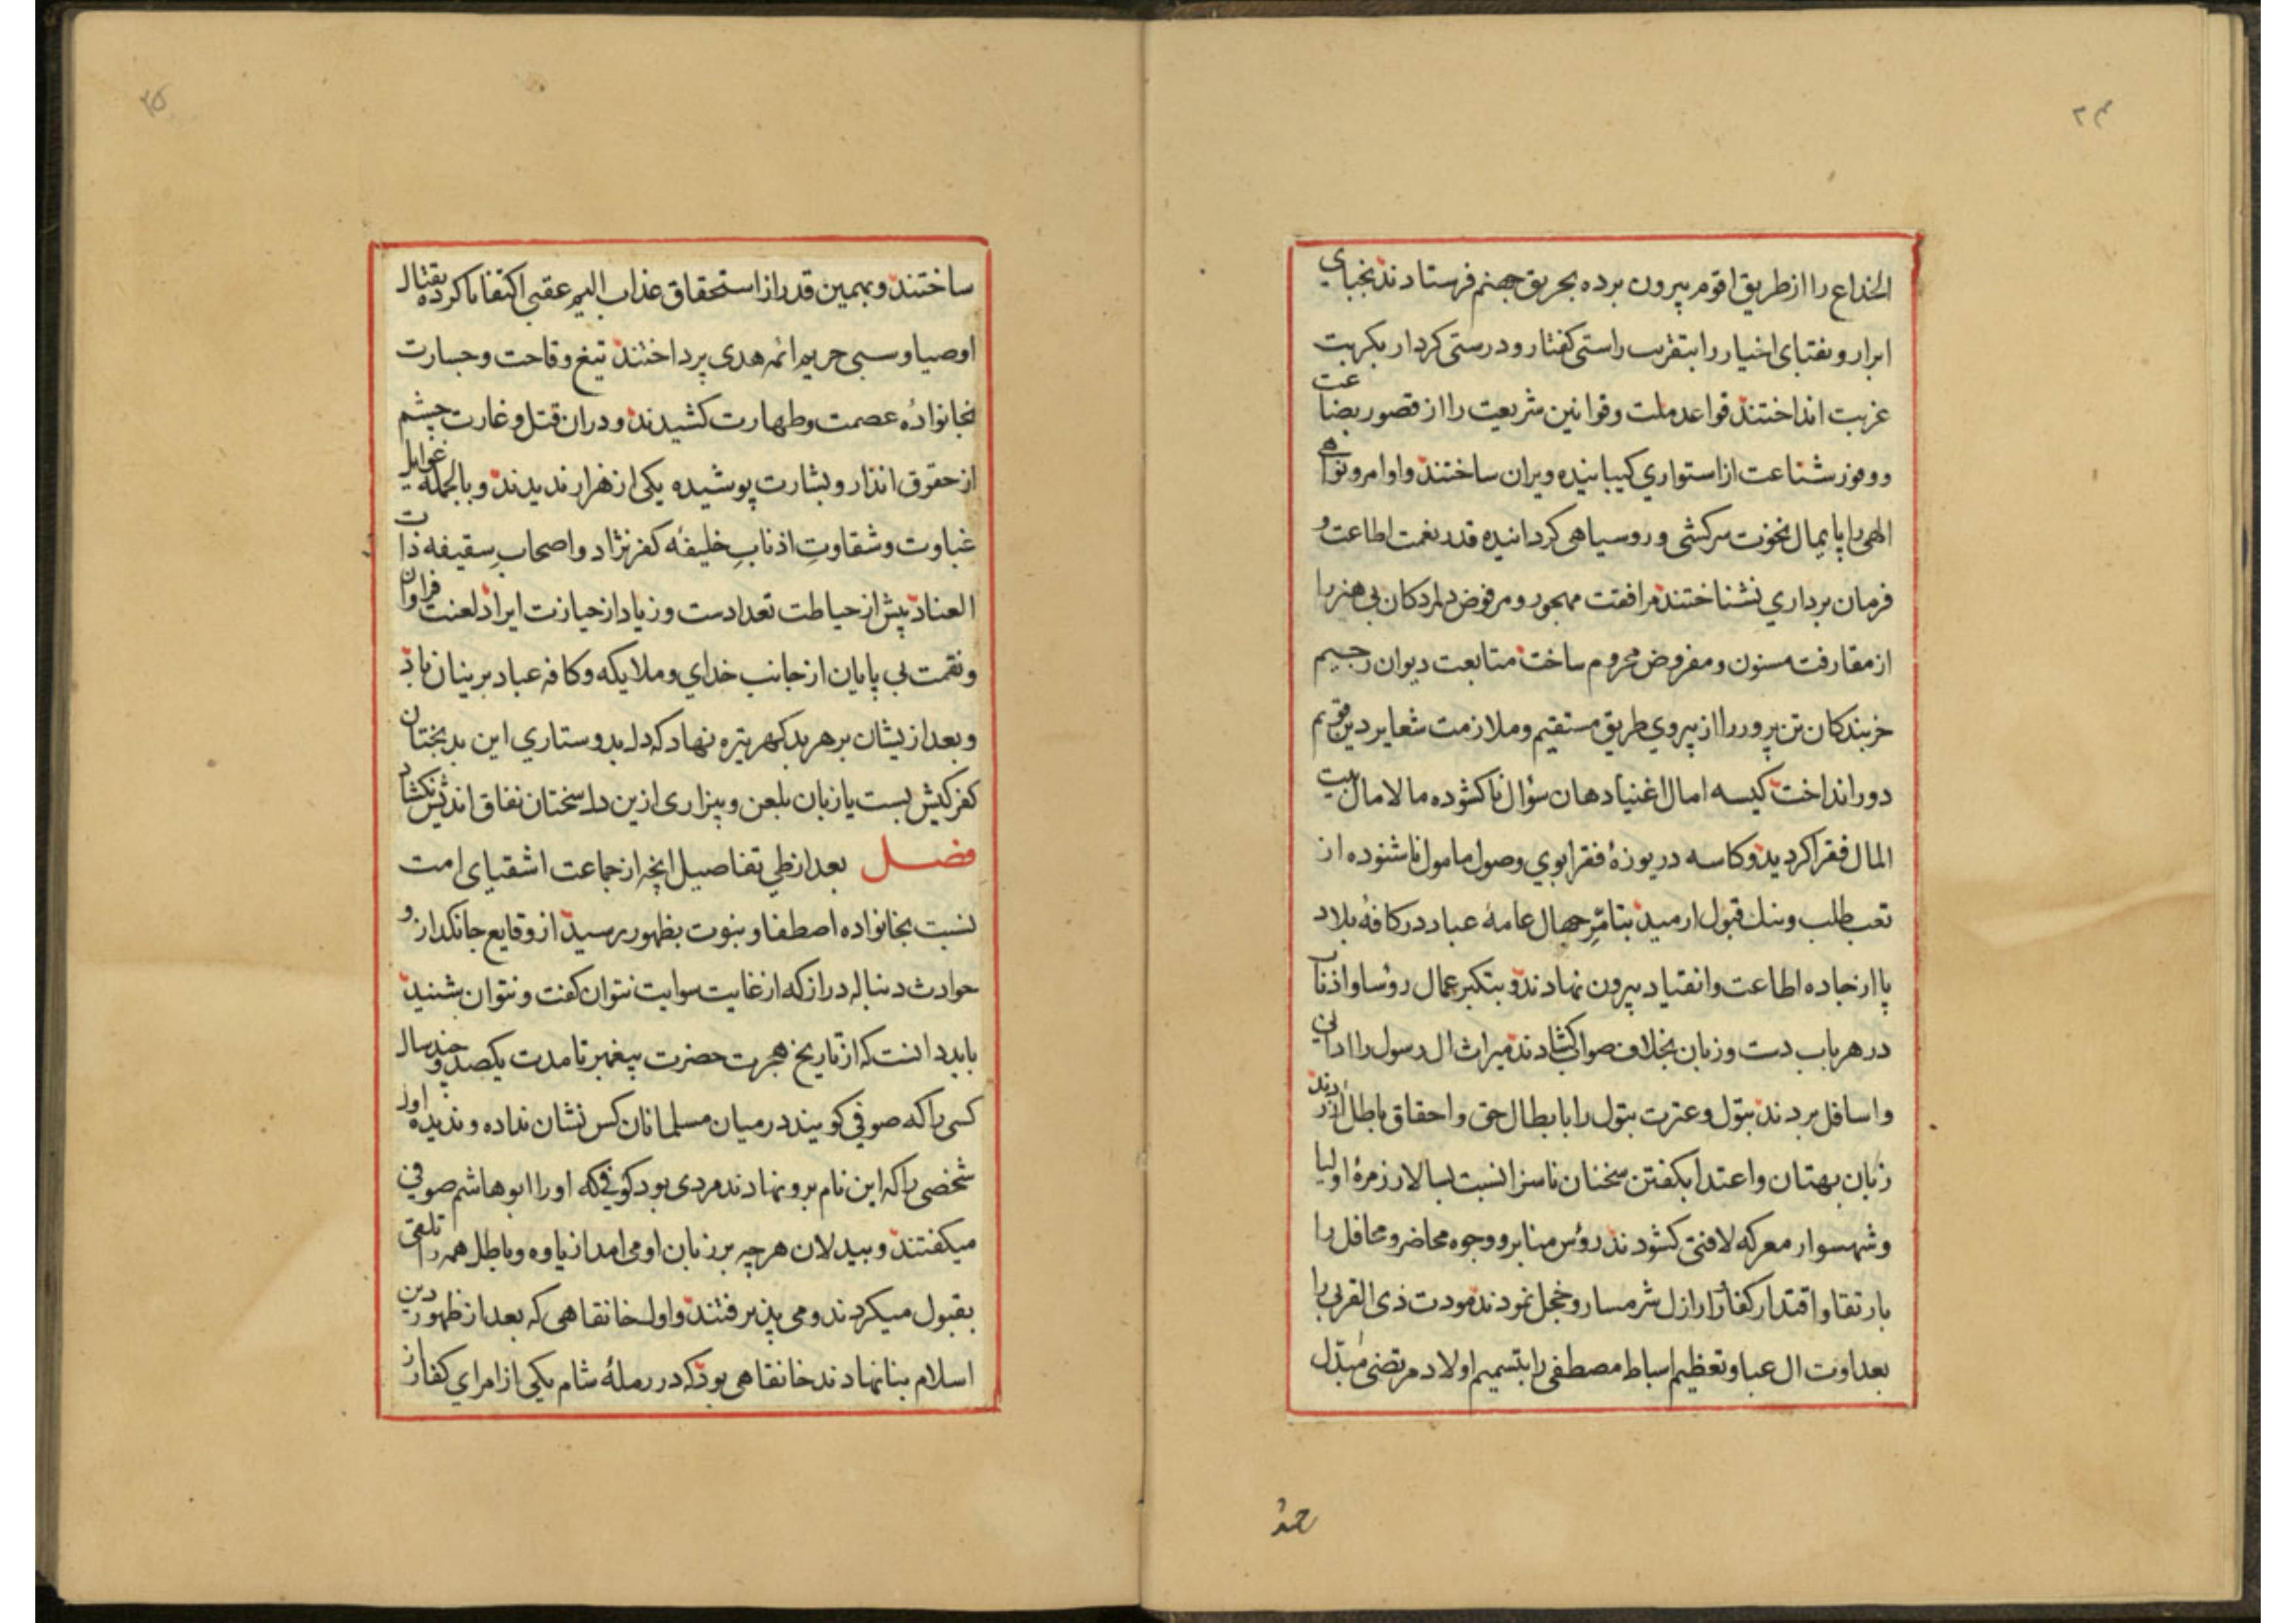 ۲۴
الخداع را از طریق اقوم بیرون برده بحریق جهنم فرستادند نجبای
ابرار و نقبای اخیار را بتقریب راستی کفتار و درستی کردار بکربت
غربت انداختند قواعد ملت و قوانین شریعت را از قصور بضاعت
و وفور شناعت از استواری ویران ساختند و اوامر و نواهی
الهی را پایمال نخوت سرکشی و روسیاهی کردانیده قدر نعمت اطاعت و
فرمان برداری نشناختند مرافقت مهجور و مرفوض دلمردکان بی هنر را
از مقارفت مسنون و مفروض محروم ساخت متابعت دیوان رجیم
خربندکان تن پرور را از پیروی طریق مستقیم و ملازمت شعایر دین قویم
دور انداخت کیسه امال اغنیا دهان سؤال ناکشوده مالامال بیت
المال فقرا کردید و کاسه دریوزهٔ فقرا بوی وصول مامول ناشنوده از
تعب طلب و ننک قبول ارمید بتامّر جهال عامهٔ عباد در کافهٔ بلاد
پا از جاده اطاعت و انقیاد بیرون نهادند و بتکبر عمال رؤسا و اذناب
در هر باب دست و زبان بخلاف صواب کشادند میراث ال رسول را ادانی
و اسافل بردند بتول و عترت بتول را بابطال حق و احقاق باطل ازردند
زبان بهتان و اعتدا بکفتن سخنان ناسزا نسبت بسالار زمرهٔ اولیا
و شهسوار معرکه لافتی کشودند رؤس منابر و وجوه محاضر و محافل را
بارتقا و اقتدار کفار ارازل شرمسار و خجل نمودند مودت ذی القربی را
بعداوت ال عبا و تعظیم اسباط مصطفی را بتسمیم اولاد مرتضی مُبَدّل
۲۵
ساختند و بهمین قدر از استحقاق عذاب الیم عقبی اکتفا ناکرده بقتال
اوصیا و سبی حریم ائمه هدی پرداختند تیغ وقاحت و جسارت
بخانوادهٔ عصمت و طهارت کشیدند و دران قتل و غارت چشم
از حقوق انذار و بشارت پوشیده یکی از هزار ندیدند و بالجمله غوایل
غباوت و شقاوتِ اذنابِ خلیفهٔ کفر نژاد و اصحابِ سِقیفه ذات
العناد بیش از حیاطت تعدادست و زیاد از حیازت ایراد لعنت فراوان
و نقمت بی پایان از جانب خدای و ملایکه و کافه عباد برینان باد
و بعد ازیشان بر هر بد کهر تیره نهاد که دل بدوستاری این بدبختان
کفر کیش بست یا زبان بلعن و بیزاری ازین دل سختان نفاق اندیش نکشاد
فصل بعد از طی تفاصیل انچه از جماعت اشقیای امت
نسبت بخانواده اصطفا و نبوت بظهور رسید از وقایع جانکداز و
حوادث دنباله دراز که از غایت نتوان کفت و نتوان شنید
باید دانست که از تاریخ هجرت حضرت پیغمبر تا مدت یکصد و چند سال
کسی را که صوفی کویند در میان مسلمانان کس نشان نداده و ندیده اول
شخصی را که این نام برو نهادند مردی بود کوفی که او را ابو هاشم صوفی
میکفتند و بیدلان هرچه بر زبان او می امد از یاوه و باطل همه را تلقی
بقبول میکردند و می پذیرفتند و اول خانقاهی که بعد از ظهور دین
اسلام بنا نهادند خانقاهی بود که در رملهٔ شام یکی از امرای کفار از